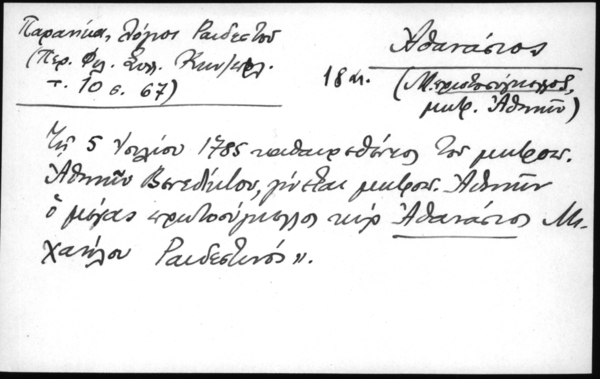 Παρανίκα, Λόγιοι Ραιδεστοῦ
(Περ. Φιλ. Συλλ. Κων/πόλ.
τ. 10 σ. 67)
Ἀθανάσιος
18 αἰ. (Μ. πρωτοσύγκελλος,
μητρ. Ἀθηνῶν)
Τῇ 5 Ἰουλίου 1785 καθαιρεθέντος τοῦ μητροπ.
Ἀθηνῶν Βενεδίκτου, γίνεται μητροπ. Ἀθηνῶν
ὁ μέγας πρωτοσύγκελλος κύρ Ἀθανάσιος Μι-
χαήλου Ραιδεστινός».